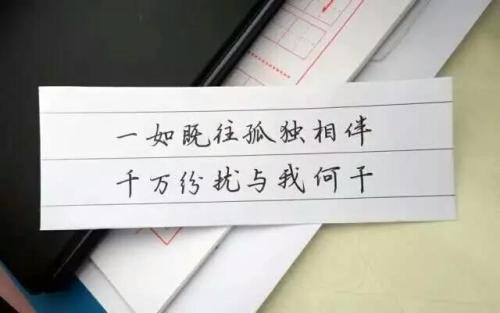 一如既往孤独相伴
千万纷扰与我何干